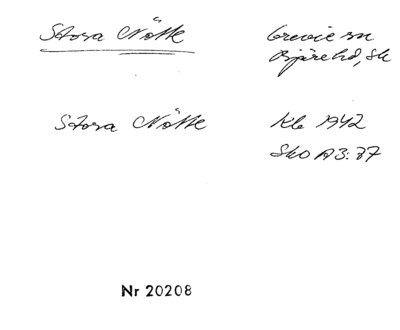 Stora Nötte
Grevie sn
Bjäre hd, Sk
Stora Nötte
Kb 1942
Sko A3:37
Nr 20208